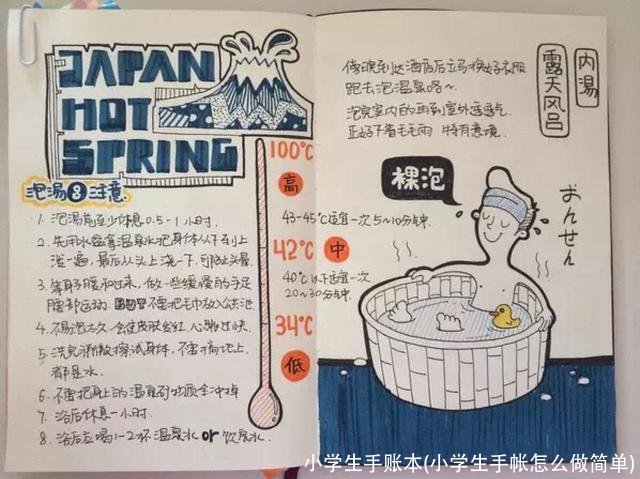 JAPAN
HOT
SPRING
泡汤8注意
1. 泡汤前至少休息0.5-1小时.
2. 先用水盆拿温泉水把身体从下到上
浇一遍,最后从头上浇一下,可防止头晕.
3. 等身子暖和过来,做一些缓慢的手足
腰部运动. 不要把毛巾放入公池.
4. 不易泡太久,会使皮肤发红,心跳过快.
5. 洗完稍微擦试身体,不要滴地上
都是水.
6. 不要把身上的温泉矿物质全冲掉
7. 浴后休息一小时.
8. 浴后应喝1-2杯温泉水 or 饮泉水.
100℃
高
43-45℃适宜一次5~10分钟.
42℃
中
40℃以下适宜一次
20~30分钟.
34℃
低
傍晚到达酒店后立马换好衣服
跑去泡温泉咯~
泡完室内的再到室外透透气
正好下着毛毛雨 特有意境.
内湯
露天风呂
裸泡
おんせん
小学生手账本(小学生手帐怎么做简单)